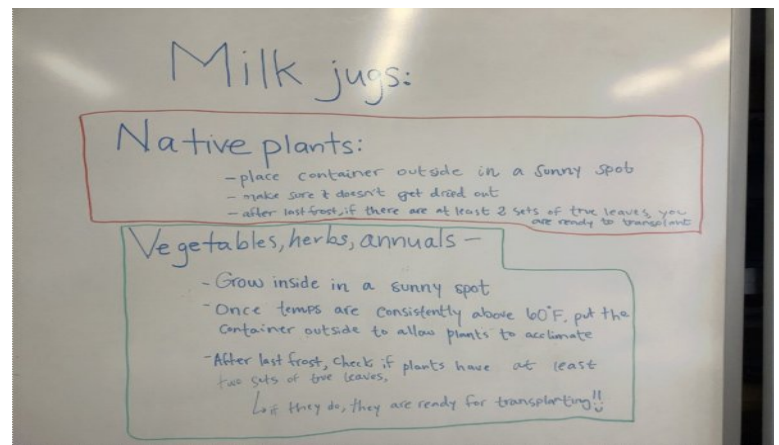 Milk jugs:
Native plants:
- place container outside in a sunny spot
- make sure it doesn't get dried out
- after last frost, if there are at least 2 sets of true leaves, you
are ready to transplant
Vegetables, herbs, annuals -
- Grow inside in a sunny spot
- Once temps are consistently above 60°F, put the
container outside to allow plants to acclimate
- After last frost, check if plants have at least
two sets of true leaves,
↳ if they do, they are ready for transplanting!!